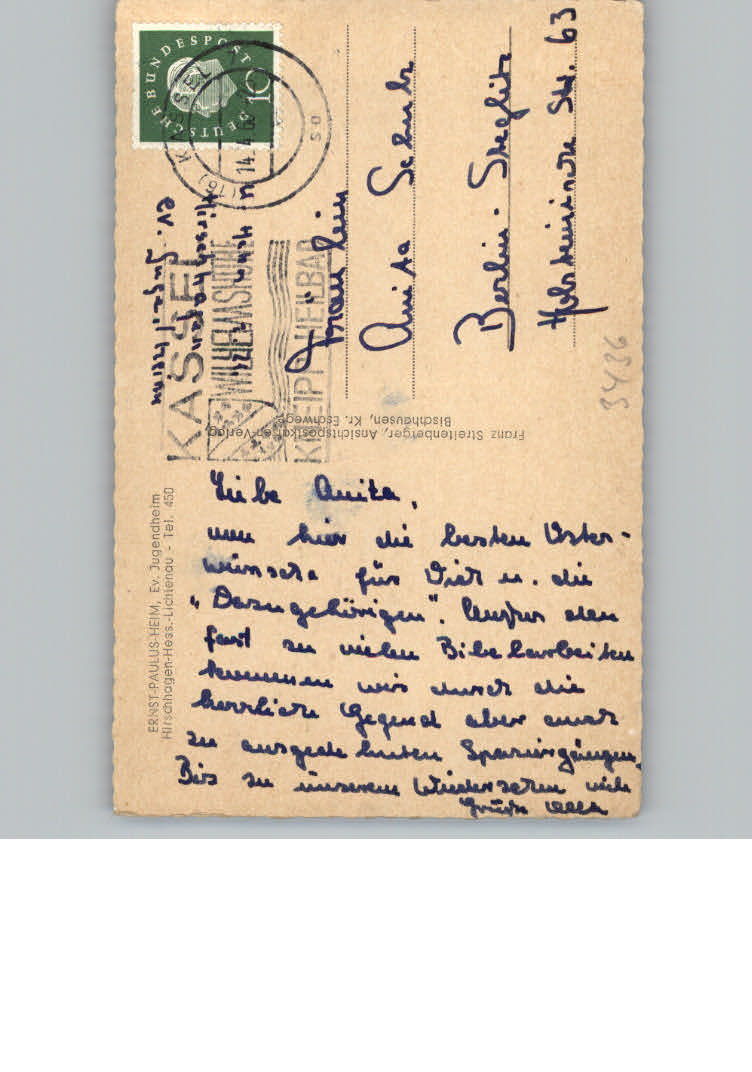 DEUTSCHE BUNDESPOST
10
(16) KASSEL
14.4.6
so
KASSEL
WILHELMSHÖHE
KNEIPP-HEILBAD
ev. Jugendheim
Hirschhagen
Fräulein
Anita Schulz
Berlin-Steglitz
Holsteinische Str. 63
3436
Franz Streitenberger, Ansichtspostkarten-Verlag,
Bischhausen, Kr. Eschwege
ERNST-PAULUS-HEIM, Ev. Jugendheim
Hirschhagen-Hess.-Lichtenau - Tel. 450
Liebe Anita,
nun hier die besten Oster-
wünsche für Dich u. die
„Dazugehörigen". Außer den
fast zu vielen Bibelarbeiten
kommen wir durch die
herrliche Gegend aber auch
zu ausgedehnten Spaziergängen.
Bis zu unserem Wiedersehen viele
Grüße